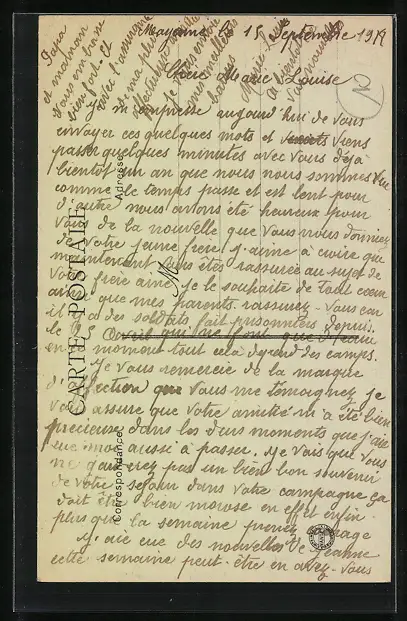 Mayenne, le 15 Septembre 1917
Chère Marie Louise
Je m'empresse aujourd'hui de vous
envoyer ces quelques mots et viens
passer quelques minutes avec vous déjà
bientôt un an que nous nous sommes vu
comme le temps passe et est lent pour
d'autre nous avons été heureux pour
vous de la nouvelle que vous nous donniez
de votre jeune frère j'aime à croire que
maintenant vous êtes rassurée au sujet de
votre frère aîné je le souhaite de tout cœur
ainsi que mes parents rassurez-vous car
il y a des soldats fait prisonniers depuis
le 25 qui que
moment tout cela dépend des camps.
Je vous remercie de la marque
d'affection que vous me témoignez je
vous assure que votre amitié m'a été bien
précieuse dans les durs moments que j'ai
eue moi aussi à passer. Je vois que vous
ne garderez pas un bien bon souvenir
de votre séjour dans votre campagne ça
doit être bien morose en effet enfin
plus que la semaine prenez courage
J'ai eue des nouvelles de Jeanne
cette semaine peut-être en avez-vous
Papa
et maman
vous embrasse
bien fort et
avec l'assurance
de ma plus
affectueuse
je vous envoie
mes meilleurs
baisers
Marie
à bientôt
vos nouvelles
N
CARTE POSTALE
Correspondance
Adresse
M